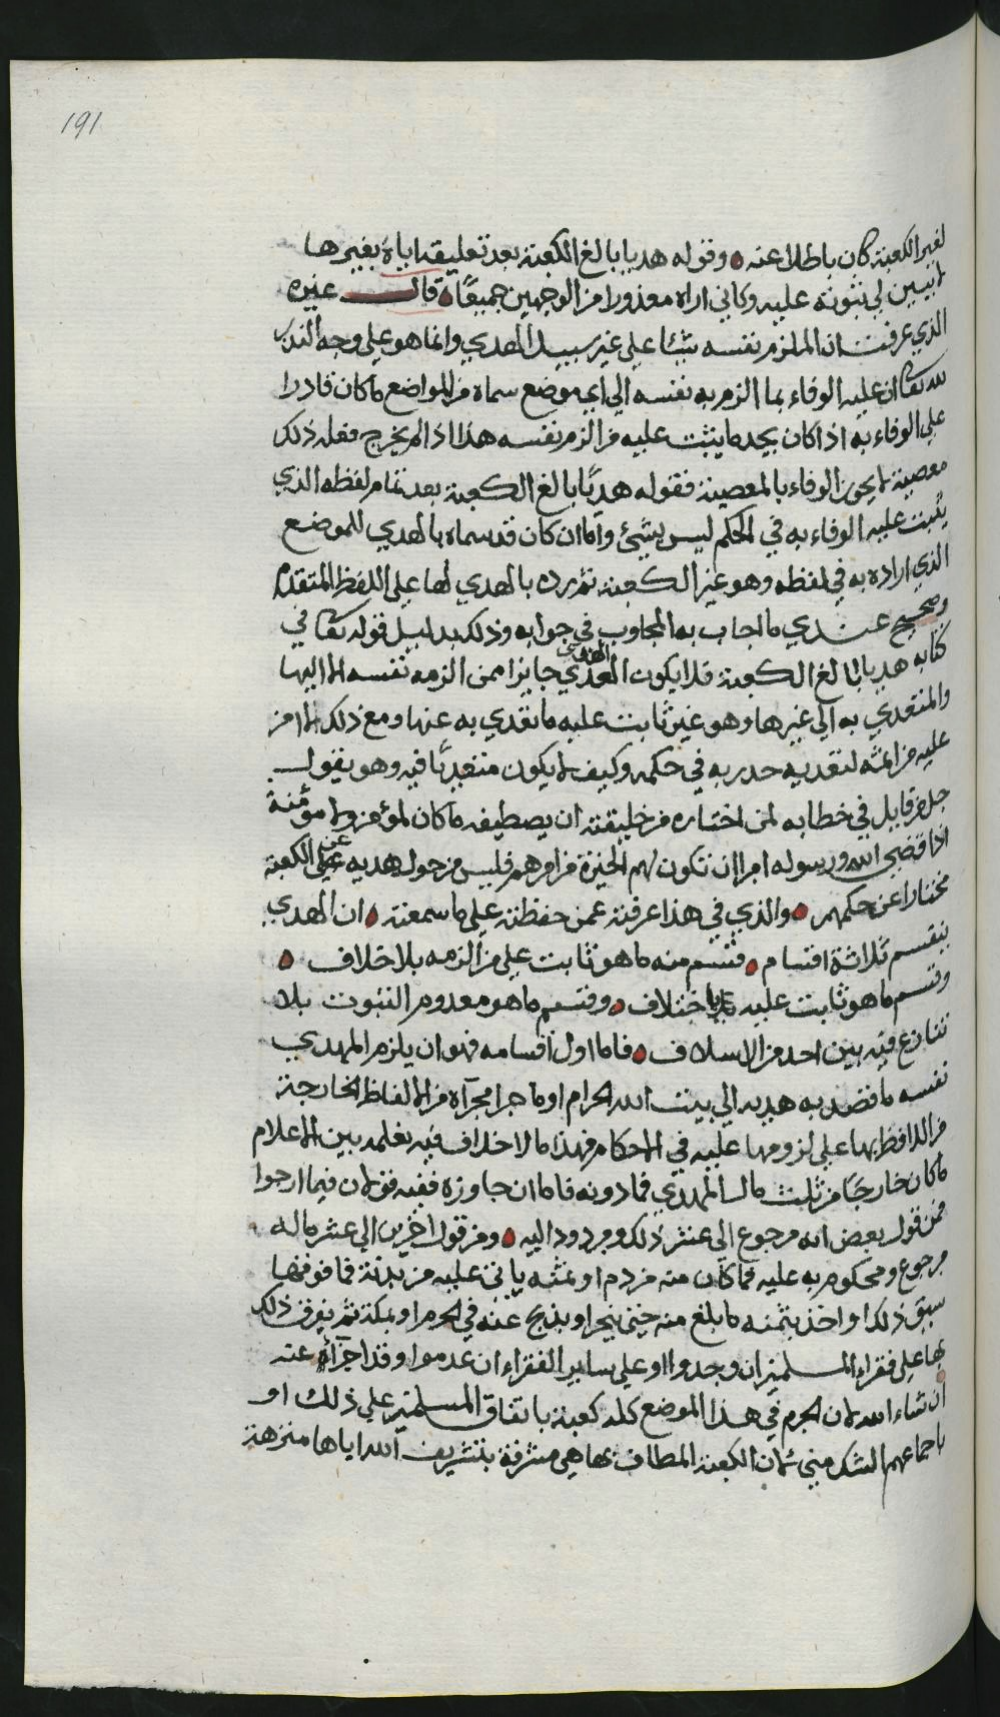 191
لغير الكعبة كان باطلا عنه وقوله هديا بالغ الكعبة بعد تعليقه اياه بغيرها
لا يبين لي ثبوته عليه وكاني اراه معذورا من الوجهين جميعًا قال غيره
الذي عرفت ان الملزم نفسه شيئا على غير سبيل الهدي وانما هو على وجه النذر
لله تعالى ان عليه الوفاء بما الزم به نفسه الى اي موضع سماه من المواضع ما كان قادرا
على الوفاء به اذا كان بحد ما يثبت عليه من الزم نفسه هذا اذا لم يخرج فعله ذلك
معصية لا يجوز الوفاء بالمعصية فقوله هديًا بالغ الكعبة بعد تمام لفظه الذي
يثبت عليه الوفاء به في الحكم ليس بشيء واما ان كان قد سماه بالهدي للموضع
الذي اراده به في لفظه وهو غير الكعبة ثم رده بالهدي لها على اللفظ المتقدم
وصحيح عندي ما اجاب به المجاوب في جوابه وذلك بدليل قوله تعالى في
كتابه هديا بالغ الكعبة فلا يكون الهدي جايزا ممن الزمه نفسه الا اليها
والمتعدي به الى غيرها وهو غير ثابت عليه ما تعدي به عنها ومع ذلك لا امن
عليه من اثمه لتعديه حد ربه في حكمه وكيف لا يكون متعديًا فيه وهو يقول
جل من قايل في خطابه لمن اختاره من خليقته ان يصطيفه ما كان لمؤمن ولا مؤمنة
اذا قضى الله ورسوله امرا ان تكون لهم الخيرة من امرهم فليس من حول هديه عن الكعبة
مختارا عن حكمهم والذي في هذا عرفته عمن حفظته على ما سمعته ان الهدي
ينقسم ثلاثة اقسام فقسم منه ما هو ثابت على من الزمه بلا خلاف
وقسم ما هو ثابت عليه باختلاف وقسم ما هو معدوم الثبوت بلا
تنازع فيه بين احد من الاسلاف فاما اول اقسامه فهو ان يلزم المهدي
نفسه ما قصد به هديه الى بيت الله الحرام او ما جرا مجراه من الالفاظ الخارجة
من اللافظ بها على لزومها عليه في الاحكام فهذا ما لا خلاف فيه نعلمه بين الاعلام
ما كان خارجًا من ثلث مال المهدي فما دونه فاما ان جاوزه ففيه قولان فيما ارجوا
فمن قول بعض انه مرجوع الى عشر ذلك ومردود اليه ومن قول اخرين الى عشر ماله
مرجوع ومحكوم به عليه فما كان منه من دم او ثمنه ياتي عليه من بدنة فما فوقها
سيق ذلك او اخذ بثمنه ما بلغ منه حتى ينحر او يذبح عنه في الحرم او بمكة ثم يفرق ذلك
بها على فقراء المسلمين ان وجدوا او على ساير الفقراء ان عدموا وقد اجزاه عنه
ان شاء الله لان الحرم في هذا الموضع كله كعبة باتفاق المسلمين على ذلك او
باجماعهم الشك مني ثم ان الكعبة المطاف بها هي مشرفة بتشريف الله اياها منزهة